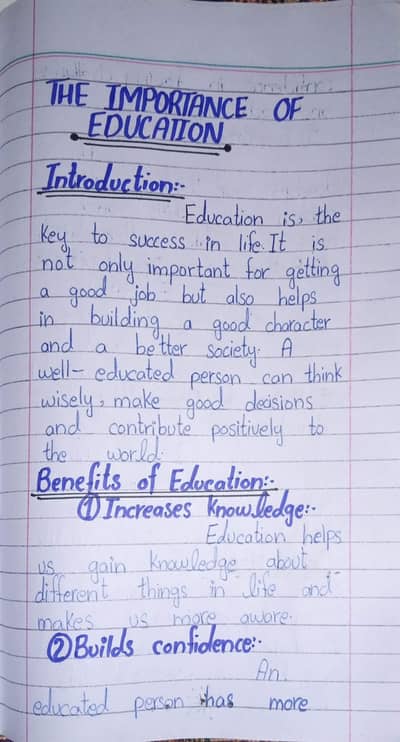 THE IMPORTANCE OF
EDUCATION
Introduction:-
Education is, the
key to success in life. It is
not only important for getting
a good job but also helps
in building a good character
and a better society. A
well- educated person can think
wisely, make good decisions
and contribute positively to
the world.
Benefits of Education:-
① Increases knowledge:-
Education helps
us gain knowledge about
different things in life and
makes us more aware.
② Builds confidence:-
An
educated person has more